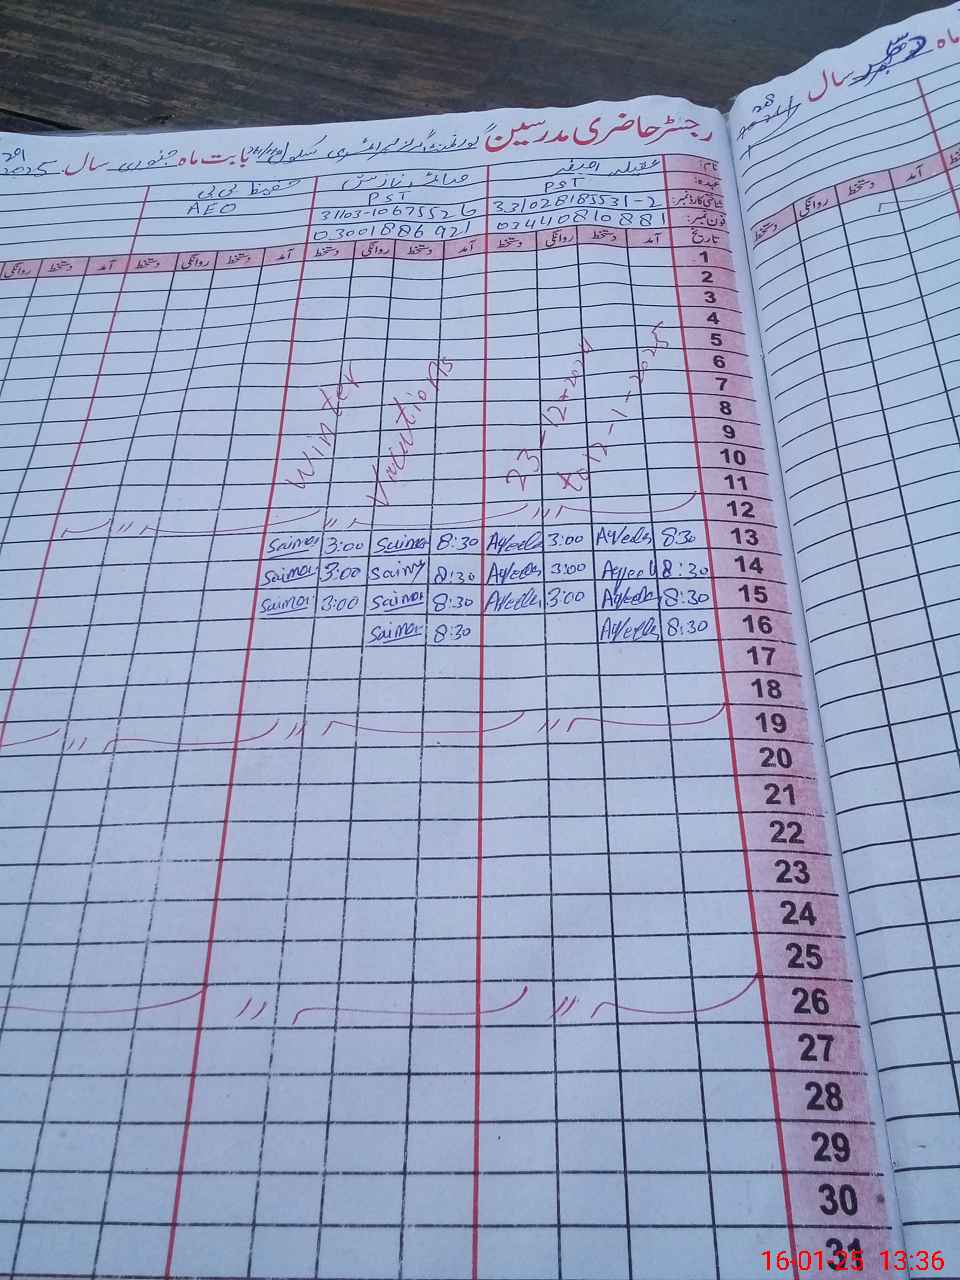 رجسٹر حاضری مدرسین گورنمنٹ گرلز پرائمری سکول بابت ماہ جنوری سال 2025
ماہ دسمبر سال
نام: عقیلہ صائمہ نازش حفیظ بی بی
عہدہ: PST PST AEO
شناختی کارڈ نمبر: 33102818553 1-2
فون نمبر: 03440810881 03001886921
تاریخ آمد دستخط روانگی دستخط آمد دستخط روانگی دستخط آمد دستخط روانگی دستخط آمد دستخط روانگی
آمد دستخط روانگی دستخط
1
2
3
4
5
6
7
8
9
10
11
12
Winter
Vacations
23-12-2024
to 12-1-2025
13 8:30 Aqeela 3:00 Aqeela 8:30 Saima 3:00 Saima
14 8:30 Aqeela 3:00 Aqeela 8:30 Saima 3:00 Saima
15 8:30 Aqeela 3:00 Aqeela 8:30 Saima 3:00 Saima
16 8:30 Aqeela 8:30 Saima
17
18
19
20
21
22
23
24
25
26
27
28
29
30
31
16-01-25 13:36